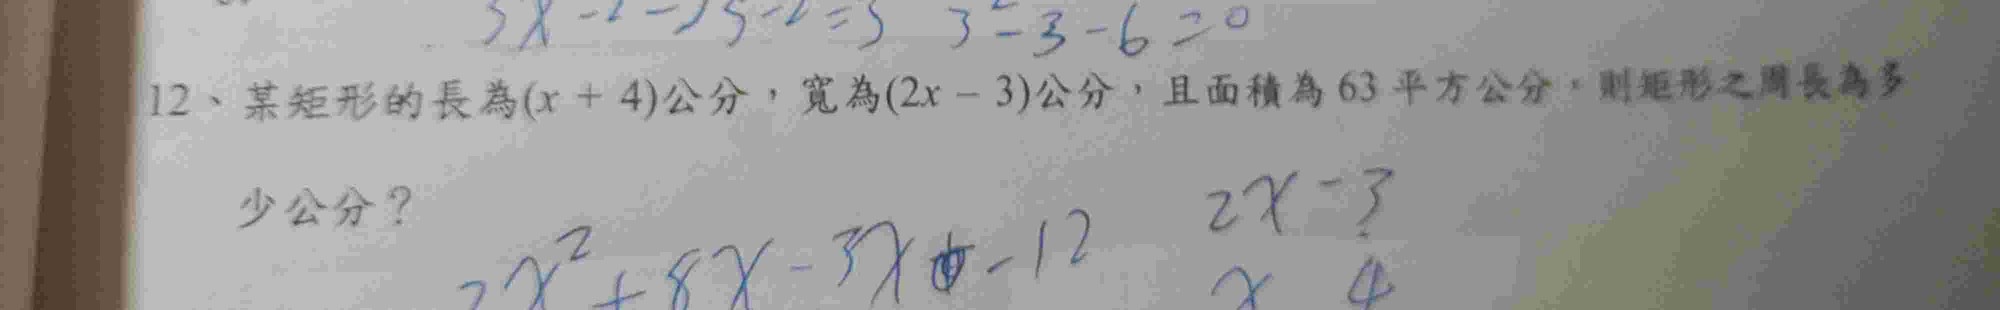 3²-3-6=0
12、某矩形的長為(x + 4)公分，寬為(2x − 3)公分，且面積為 63 平方公分，則矩形之周長為多
少公分？
2x-3
2x²+8x-3x-12
x 4